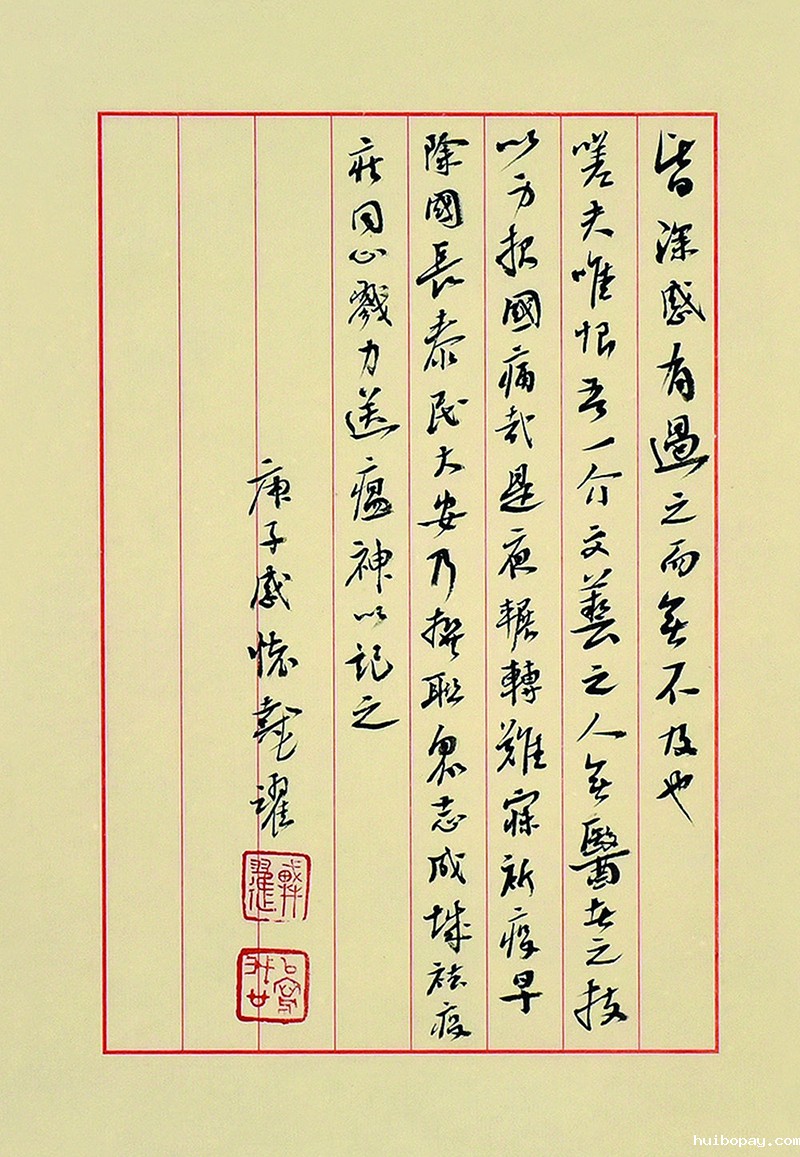 皆深感有過之而無不及也
嗟夫唯恨吾一介文藝之人無醫者之技
以方報國痛哉是夜輾轉難寐祈疫早
除國長泰民大安乃撰聯眾志成城祛疫
疾同心戮力送瘟神以記之
庚子感懷戴濯
huibopay.com